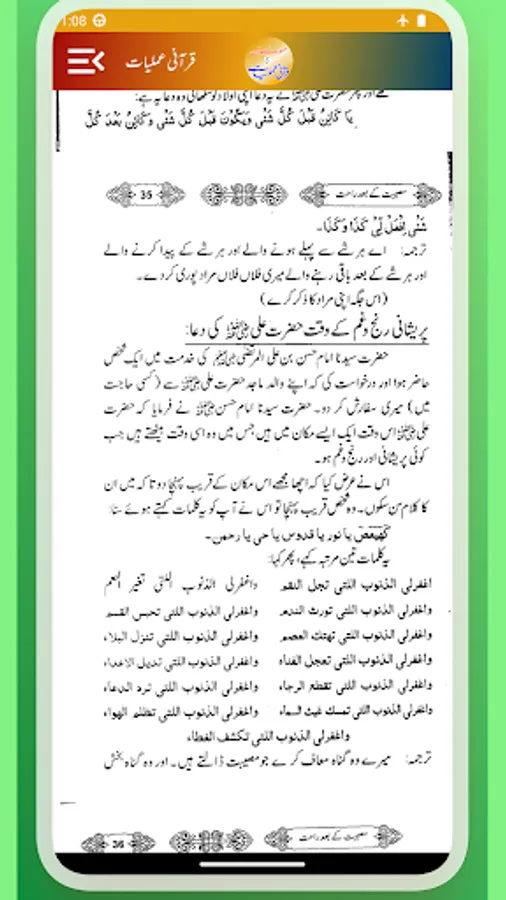 1:08
قرآنی عملیات
یَا کَائِنُ قَبْلَ کُلِّ شَئْیٍ وَیَکُوْنُ قَبْلَ کُلِّ شَئْیٍ وَکَائِنٌ بَعْدَ کُلِّ
مصیبت کے بعد راحت
35
شَئْیٍ اِفْعَلْ لِیْ کَذَا وَکَذَا۔
ترجمہ: اے ہر شے سے پہلے ہونے والے اور ہر شے کے پیدا کرنے والے
اور ہر شے کے بعد باقی رہنے والے میری فلاں فلاں مراد پوری کر دے۔
(اس جگہ اپنی مراد کا ذکر کرے)
پریشانی رنج و غم کے وقت حضرت علی رضی اللہ عنہ کی دعا:
حضرت سیدنا امام حسن بن علی المرتضی کی خدمت میں ایک شخص
حاضر ہوا اور درخواست کی کہ اپنے والد ماجد حضرت علی سے (کسی حاجت
میں) میری سفارش کر دو۔ حضرت سیدنا امام حسن نے فرمایا کہ حضرت
علی اس وقت ایک ایسے مکان میں ہیں جس میں وہ اسی وقت بیٹھتے ہیں جب
کوئی پریشانی اور رنج و غم ہو۔
اس نے عرض کیا کہ اچھا مجھے اس مکان کے قریب پہنچا دو تا کہ میں ان
کا کلام سن سکوں۔ وہ شخص قریب پہنچا تو اس نے آپ کو یہ کلمات کہتے ہوئے سنا:
کٓھٰیٰعٓصٓ یا نور یا قدوس یا حی یا رحمن۔
یہ کلمات تین مرتبہ کہے، پھر کہا:
اغفرلی الذنوب اللتی تحل النقم واغفرلی الذنوب اللتی تغیر النعم
واغفرلی الذنوب اللتی تورث الندم واغفرلی الذنوب اللتی تحبس القسم
واغفرلی الذنوب اللتی تهتك العصم واغفرلی الذنوب اللتی تنزل البلاء
واغفرلی الذنوب اللتی تعجل الفناء واغفرلی الذنوب اللتی تدیل الاعداء
واغفرلی الذنوب اللتی تقطع الرجاء واغفرلی الذنوب اللتی ترد الدعاء
واغفرلی الذنوب اللتی تمسك غیث السماء واغفرلی الذنوب اللتی تظلم الهواء
واغفرلی الذنوب اللتی تکشف الغطاء
ترجمہ: میرے وہ گناہ معاف کر دے جو مصیبت ڈالتے ہیں۔ اور وہ گناہ بخش
مصیبت کے بعد راحت
36